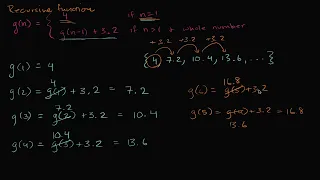 Recursive function
g(n) = { 4 if n=1
g(n-1) + 3.2 if n>1 & whole number
+3.2 +3.2 +3.2
{4, 7.2, 10.4, 13.6, ...}
g(1) = 4
4
g(2) = g(1) + 3.2 = 7.2
7.2
g(3) = g(2) + 3.2 = 10.4
10.4
g(4) = g(3) + 3.2 = 13.6
16.8
g(6) = g(5) + 3.2
g(5) = g(4) + 3.2 = 16.8
13.6